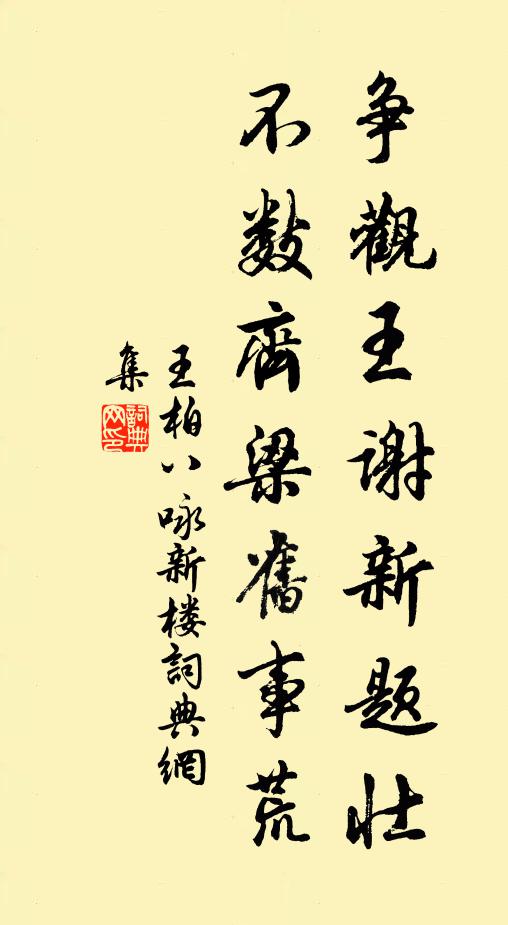 争觀王谢新題壮
不数齊梁舊事荒
王柏八咏新楼詞典網
集
詞典網印